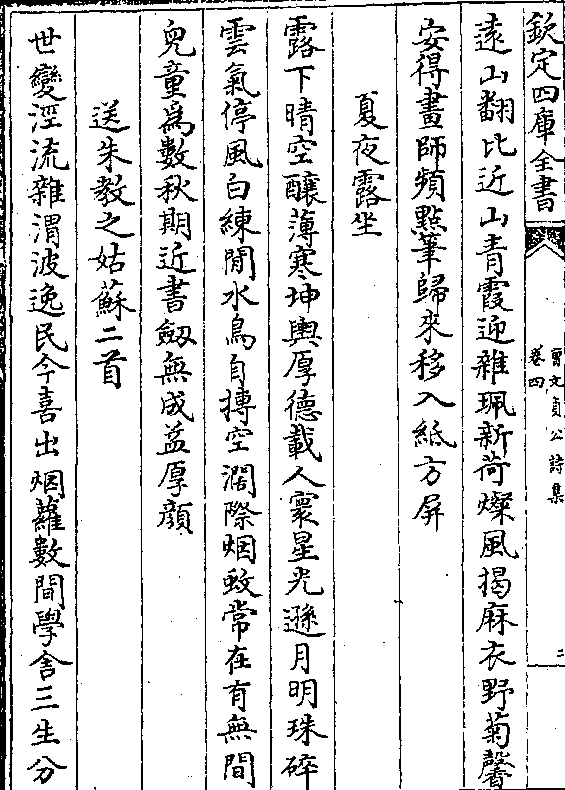 欽定四庫全書
曹文貞公詩集
卷四
二
遠山翻比近山青霞迎雜珮新荷燦風揭麻衣野菊馨
安得畫師頻㸃筆歸來移入紙方屏
夏夜露坐
露下晴空釀薄寒坤輿厚德載人寰星光遜月明珠碎
雲氣停風白練閒水鳥自摶空濶際烟蚊常在有無間
兒童為數秋期近書劔無成益厚顔
送朱教之姑蘇二首
世變涇流雜渭波逸民今喜出烟蘿數間學舍三生分